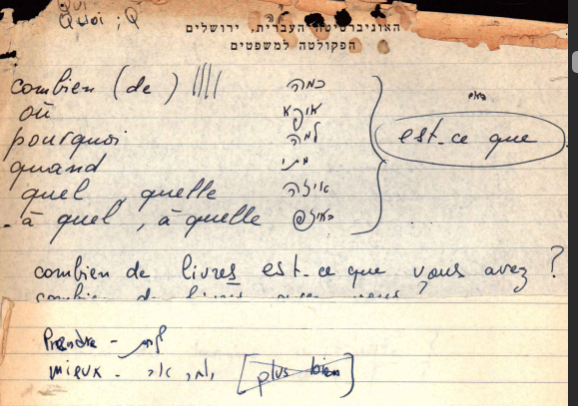 Quoi ; Q
האוניברסיטה העברית, ירושלים
הפקולטה למשפטים
combien (de) כמה
où איפא
pourquoi למה
quand מתי
est-ce que האם
quel, quelle איזה
- à quel, à quelle באיזה
combien de livres est-ce que vous avez ?
combien de livres avez vous
Prendre - לקחת
mieux - [plus bien]